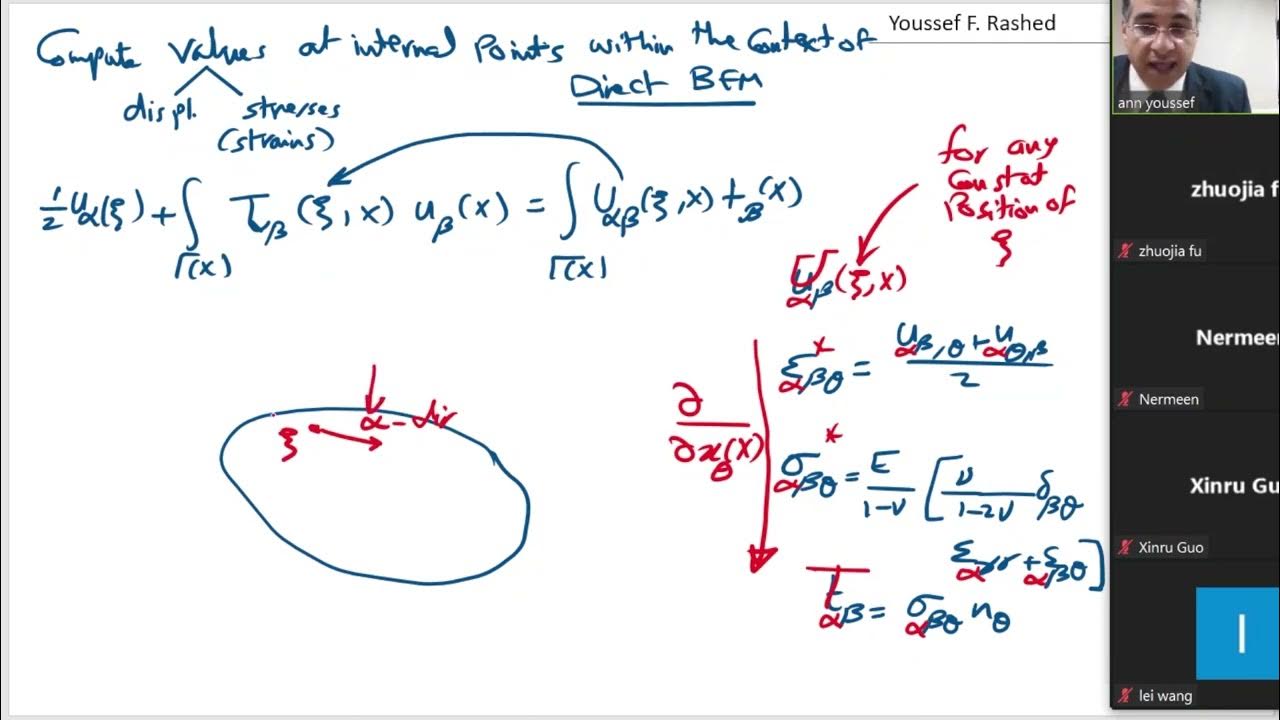 Youssef F. Rashed
Compute values at internal Points within the Context of
Direct BEM
displ. stresses
(strains)
½ uα(ξ) + ∫Γ(x) Tαβ(ξ, x) uβ(x) = ∫Γ(x) Uαβ(ξ, x) tβ(x)
for any
Constat
Position of
ξ
Uαβ(ξ, x)
ε*αβθ = (uαβ,θ + uαθ,β) / 2
∂ / ∂xθ(x)
σ*αβθ = E / 1-ν [ ν / 1-2ν δβθ
εαγγ + εαβθ ]
Tαβ = σαβθ nθ
ξ
α-dir
ann youssef
zhuojia f
zhuojia fu
Nermee
Nermeen
Xinru Gu
Xinru Guo
l
lei wang